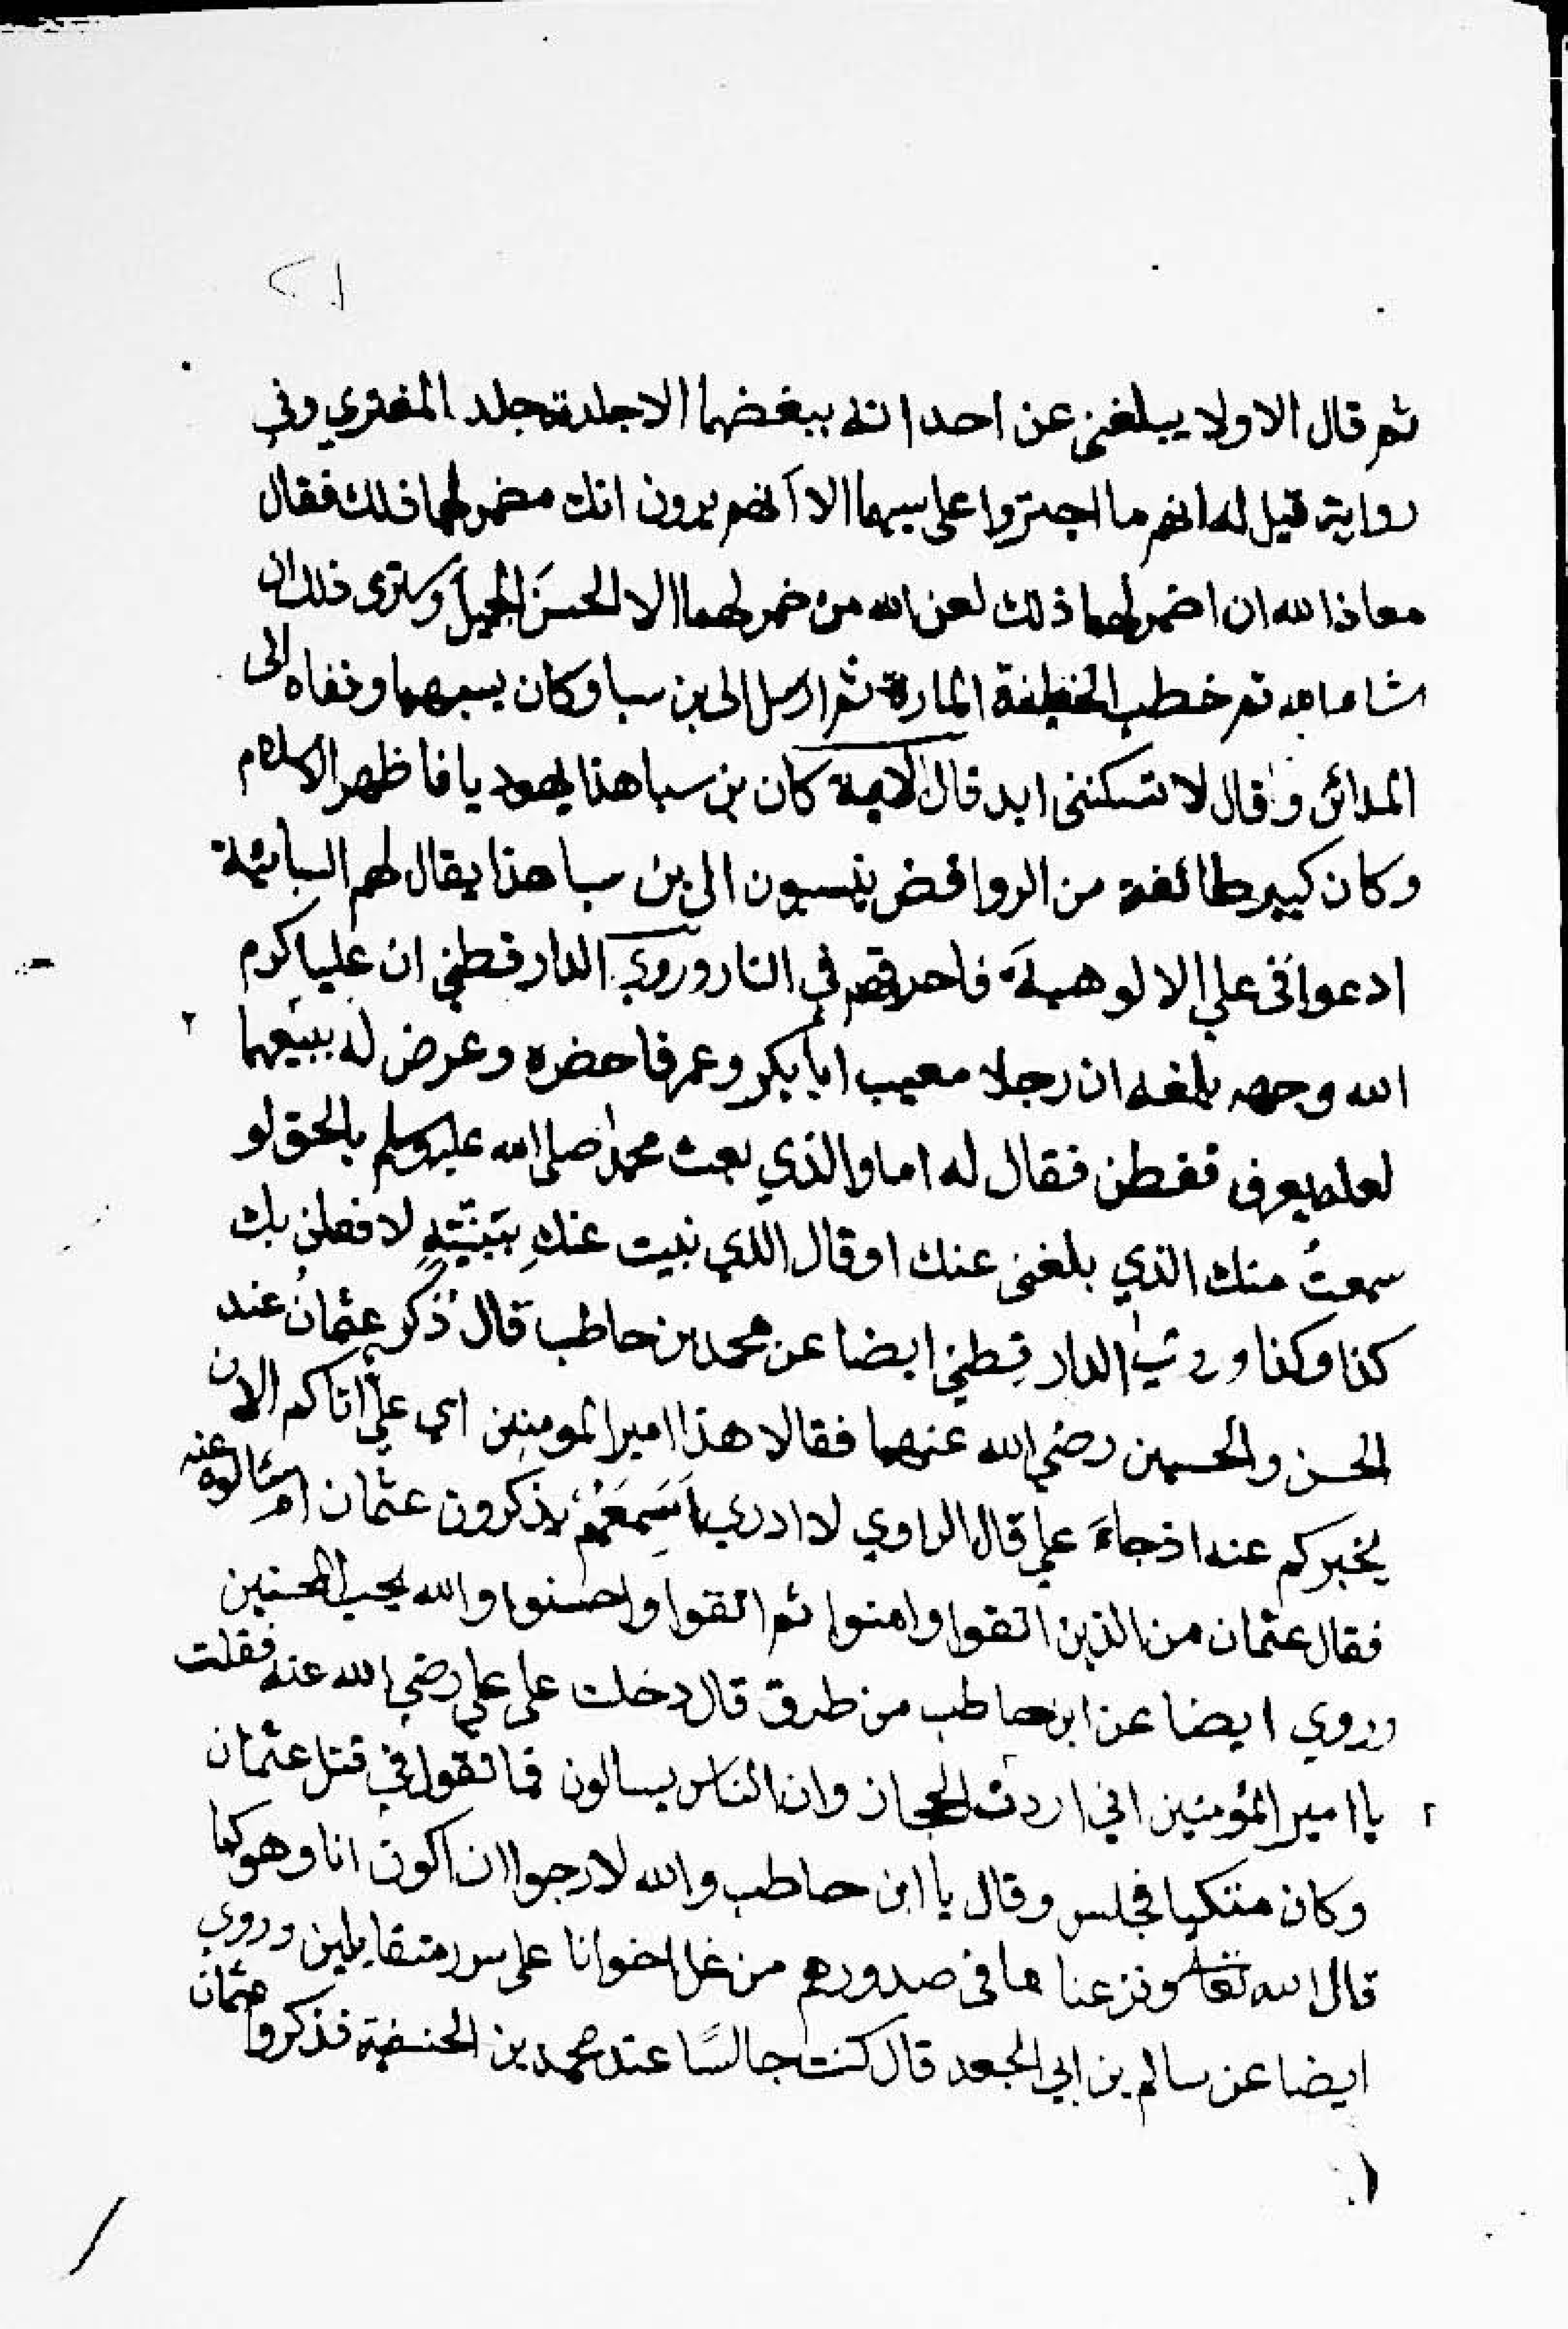 ٢١
ثم قال الا ولا يبلغني عن احد انه يبغضهما الا جلدته جلد المفتري وفي
رواية قيل له انهم ما اجتروا على سبهما الا انهم يرون انك مضمر لهما ذلك فقال
معاذ الله ان اضمر لهما ذلك لعن الله من ضمر لهما الا الحسنَ الجميلَ وسترى ذلك ان
شاء الله ثم خطب الخطبة المارة ثم ارسل الى بن سبا وكان يسبهما ونفاه الى
المدائن وقال لا تسكنني ابد قال الايمة كان بن سبا هذا يهوديا فاظهر الاسلام
وكان كبير طائفة من الروافض ينسبون الى بن سبا هذا يقال لهم السبائية
ادعوا في علي الالوهية فاحرقهم في النار وروي الدارقطني ان عليا كرم
الله وجهه بلغه ان رجلا معيب ابا بكر وعمر فاحضره وعرض له بسبهما
لعله يعرف ففطن فقال له اما والذي بعث محمدا صلى الله عليه وسلم بالحق لو
سمعتُ منك الذي بلغني عنك او قال الذي نبيت عنك ببينةٍ لافعلن بك
كذا وكذا الدارقطني ايضا عن محمد بن حاطب قال ذُكر عثمانُ عند
الحسن والحسين رضي الله عنهما فقالا هذا امير المومنين اي عليّ اتاكم الان
يخبركم عنه اذ جاءَ علي قال الراوي لا ادري اَسَمِعَهُم يذكرون عثمان ام سالوه عنه
فقال عثمان من الذين اتقوا وامنوا ثم اتقوا واحسنوا والله يحب المحسنين
وروي ايضا عن ابن حاطب من طرق قال دخلت على علي رضي الله عنه فقلت
يا امير المؤمنين اني اردت الحجاز وان الناس يسالون فما تقول في قتل عثمان
وكان متكيا فجلس وقال يا ابن حاطب والله لارجوا ان اكون انا وهو كما
قال الله تعالى ونزعنا ما في صدورهم من غل اخوانا على سرر متقابلين وروي
ايضا عن سالم بن ابي الجعد قال كنت جالسًا عند محمد بن الحنفية فذكروا عثمان